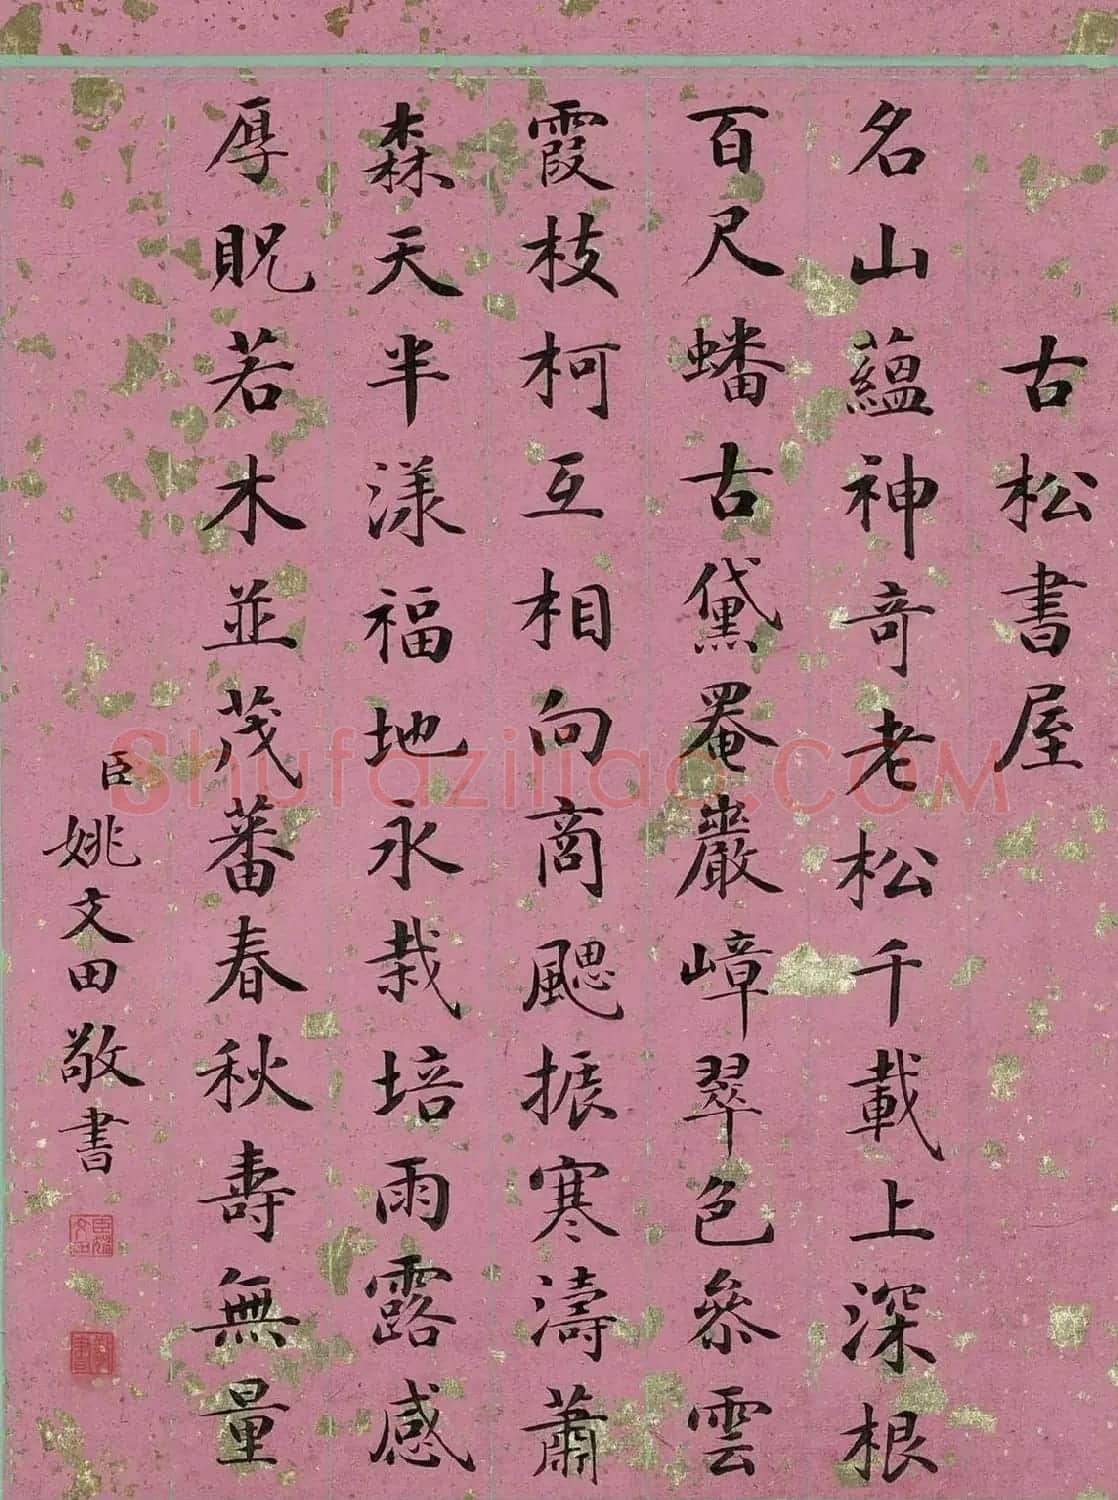 古松書屋
名山蘊神奇老松千載上深根
百尺蟠古黛罨巖嶂翠色叅雲
霞枝柯互相向商颸振寒濤蕭
森天半漾福地永栽培雨露感
厚貺若木並茂蕃春秋壽無量
臣姚文田敬書
Shufaziliao.COM